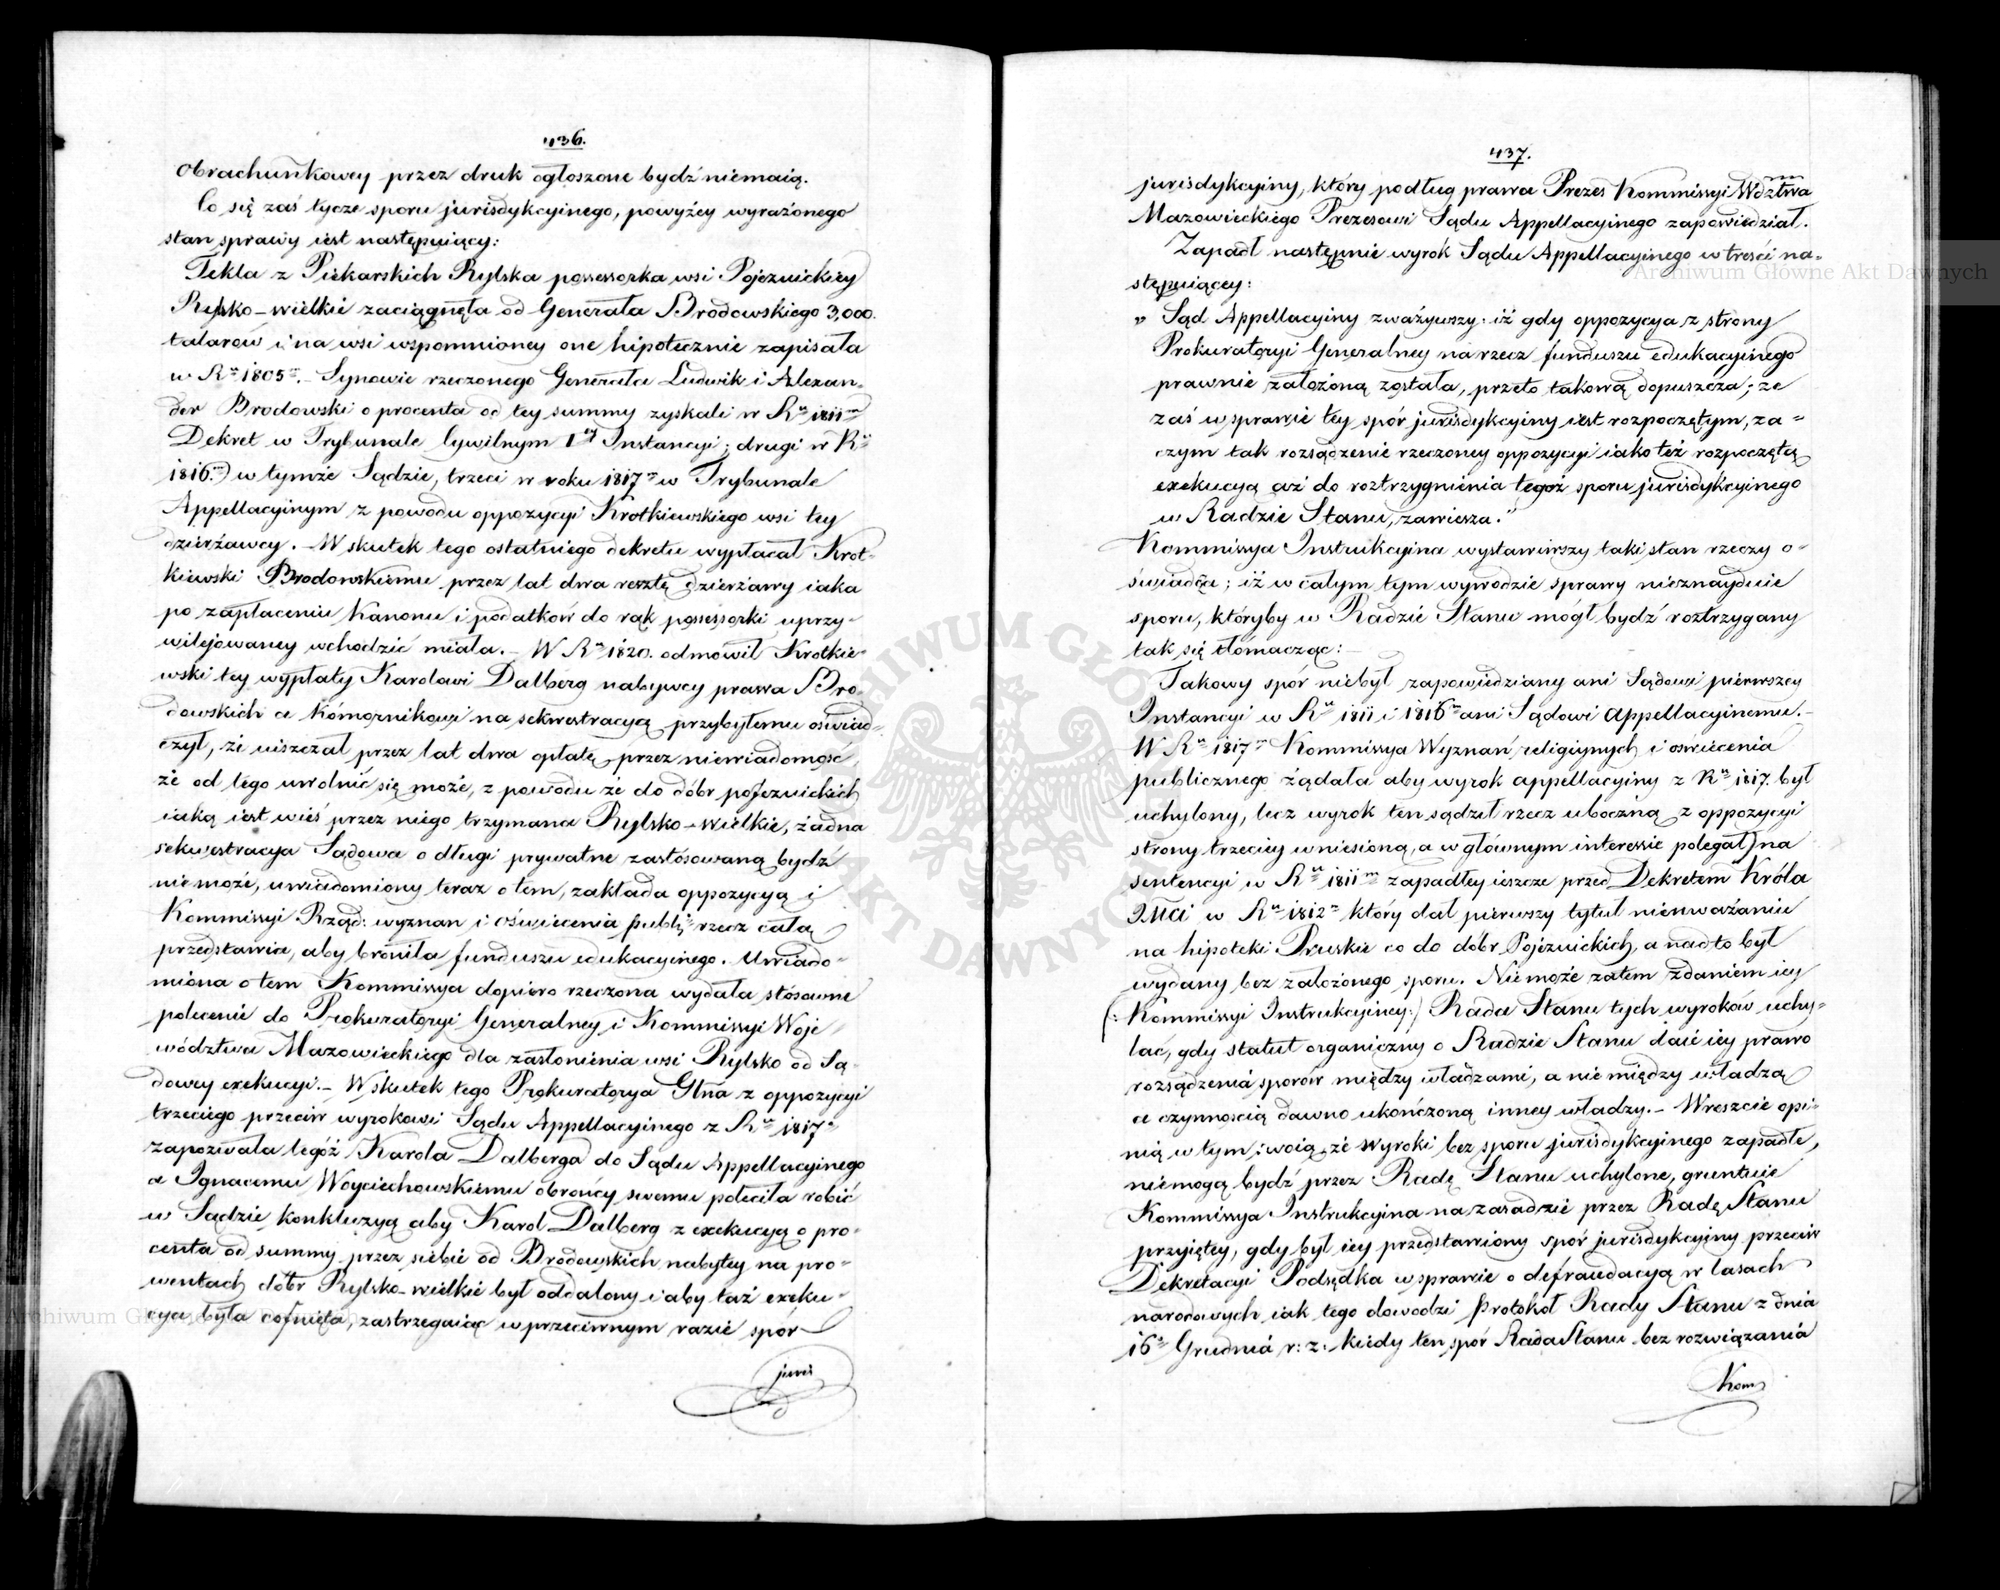 436.
Obrachunkowey przez druk ogłoszone bydź niemaią.
Co się zaś tycze sporu jurisdykcyinego, powyżey wyrażonego
stan sprawy iest następuiący:
Tekla z Piekarskich Rylska possessorka wsi Pojezuickiey
Rylsko-wielkie zaciągnęła od Generała Brodowskiego 3,000.
talarów i na wsi wspomnioney one hipotecznie zapisała
w Ru 1805m. Synowie rzeczonego Generała Ludwik i Alexan-
der Brodowski o procenta od tey summy zyskali w Ru 1811m
Dekret w Trybunale Cywilnym Iey Instancyi; drugi w Ru
1816m) w tymże Sądzie, trzeci w roku 1817m w Trybunale
Appellacyinym z powodu oppozycyi Krotkiewskiego wsi tey
dzierżawcy. - W skutek tego ostatniego dekretu wypłacał Krot-
kiewski Brodowskiemu przez lat dwa resztę dzierżawy iaka
po zapłaceniu Kanonu i podatków do rąk possessorki uprzy-
wilejowaney wchodzić miała. - W Ru 1820. odmówił Krotkie-
wski tey wypłaty Karolowi Dalberg nabywcy prawa Bro-
dowskich a Komornikowi na sekwestracyą przybyłemu oświad-
czył, że uiszczał przez lat dwa opłatę przez niewiadomość,
że od tego uwolnić się może, z powodu że do dóbr pojezuickich
iaką iest wieś przez niego trzymana Rylsko-wielkie, żadna
sekwestracya Sądowa o długi prywatne zastósowaną bydź
nie może, uwiadomiony teraz o tem, zakłada oppozycyą i
Kommissyi Rząd: wyznan i oświecenia publ: rzecz całą
przedstawia, aby broniła funduszu edukacyinego. Uwiado-
miona o tem Kommissya dopiero rzeczona wydała stósowne
polecenie do Prokuratoryi Generalney i Kommissyi Woje
wództwa Mazowieckiego dla zasłonienia wsi Rylsko od Są-
dowey exekucyi. - W skutek tego Prokuratorya Glna z oppozycyi
trzeciego przeciw wyrokowi Sądu Appellacyinego z Ru 1817o
zapozwała tegóż Karola Dalberga do Sądu Appellacyinego
a Ignacemu Woyciechowskiemu obrońcy swemu poleciła robić
w Sądzie konkluzyą aby Karol Dalberg z exekucyą o pro-
centa od summy przez siebie od Brodowskich nabytey na pro-
wentach dóbr Rylsko-wielkie był oddalony i aby taż exeku-
cya była cofnięta, zastrzegaiąc w przeciwnym razie spór
juris
437.
jurisdykcyiny, który podług prawa Prezes Kommissyi Wdztwa
Mazowieckiego Prezesowi Sądu Appellacyinego zapowiedział.
Zapadł następnie wyrok Sądu Appellacyinego w treści na-
stępuiącey:
„ Sąd Appellacyiny zważywszy: iż gdy oppozycya z strony
Prokuratoryi Generalney na rzecz funduszu edukacyinego
prawnie założoną została, przeto takową dopuszcza; że
zaś w sprawie tey spór jurisdykcyiny iest rozpoczętym, za-
czym tak rozsądzenie rzeczoney oppozycyi iako też rozpoczętą
exekucyą aż do roztrzygnienia tegoż sporu jurisdykcyinego
w Radzie Stanu, zawiesza.”
Kommissya Instrukcyina wystawiwszy taki stan rzeczy o-
świadcza; iż w całym tym wywodzie sprawy nieznayduie
sporu, któryby w Radzie Stanu mógł bydź roztrzygany
tak się tłómacząc: -
Takowy spór niebył zapowiedziany ani Sądowi pierwszey
Instancyi w Ru 1811 i 1816m ani Sądowi Appellacyinemu. -
W Ru 1817m Kommissya Wyznań religiynych i oswiecenia
publicznego żądała aby wyrok appellacyiny z Ru 1817. był
uchylony, lecz wyrok ten sądził rzecz uboczną z oppozycyi
strony trzeciey wniesioną, a w głównym interessie polegał na
sentencyi w Ru 1811m zapadłey ieszcze przed Dekretem Króla
JMci w Ru 1812m który dał pierwszy tytuł nieuważaniu
na hipoteki Pruskie co do dóbr Pojezuickich, a nadto był
wydany bez założonego sporu. Nie może zatem zdaniem iey
(: Kommissyi Instrukcyiney:) Rada Stanu tych wyroków uchy-
lać, gdy statut organiczny o Radzie Stanu daie iey prawo
rozsądzenia sporów między władzami, a nie między władzą
a czynnoscią dawno ukończoną inney władzy. - Wreszcie opi-
nią w tym swoią, że wyroki bez sporu jurisdykcyinego zapadłe,
niemogą bydź przez Radę Stanu uchylone, gruntuie
Kommissya Instrukcyina na zasadzie przez Radę Stanu
przyiętey, gdy był iey przedstawiony spór jurisdykcyiny przeciw
Dekretacyi Podsędka w sprawie o defraudacyą w lasach
narodowych iak tego dowodzi protokół Rady Stanu z dnia
16o Grudnia r: z: kiedy ten spór Rada Stanu bez rozwiązania
Kom
Archiwum Główne Akt Dawnych
Archiwum Główne Akt Dawnych
ARCHIWUM GŁÓWNE AKT DAWNYCH